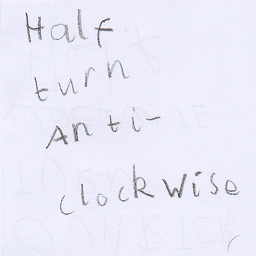 Half
turn
Anti-
clockwise